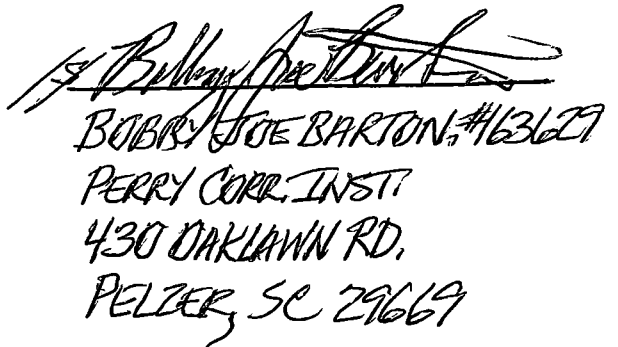 /s/ Bobby Joe Barton
BOBBY JOE BARTON, #163629
PERRY CORR. INST.
430 OAKLAWN RD.
PELZER, SC 29669